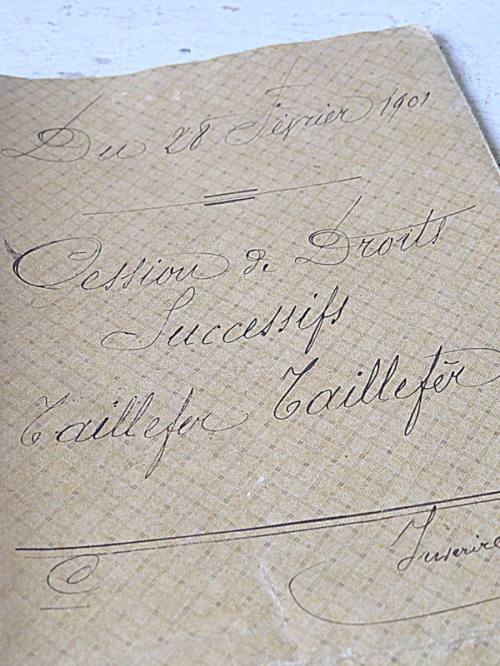 Du 28 Février 1901
Cession de Droits
Successifs
Taillefer Taillefer
C